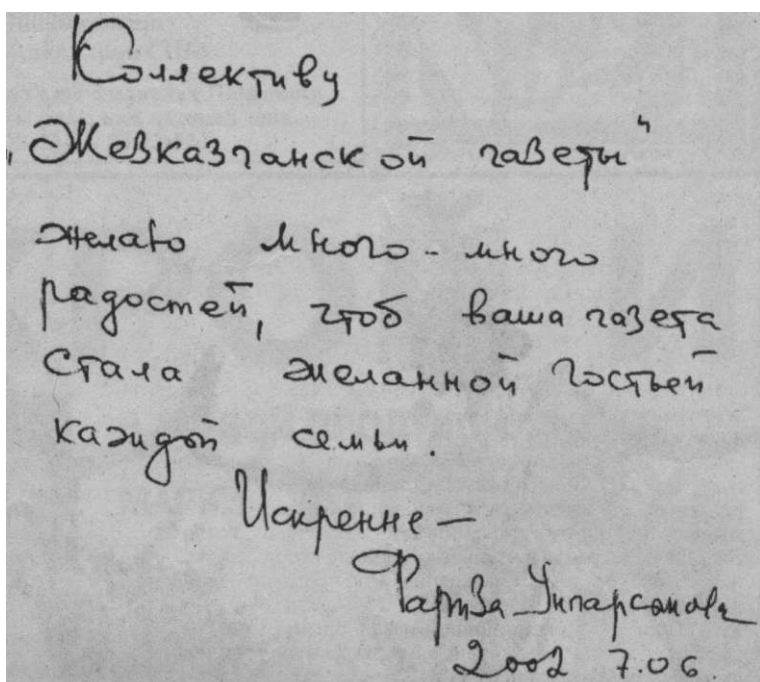 Коллективу
„Жезказганской газеты“
желаю много-много
радостей, чтоб ваша газета
стала желанной гостьей
каждой семьи.
Искренне —
Фариза Унгарсынова
2002 7.06.